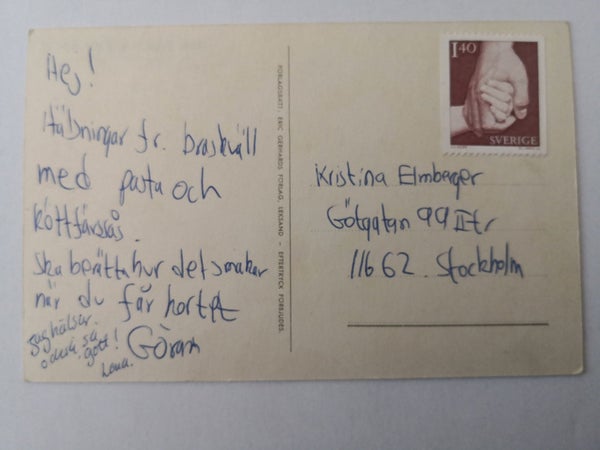 Hej!
Hälsningar fr. braskväll
med pasta och
köttfärssås.
Ska berätta hur det smakar
när du får kortet
Göran
Jag hälsar
också så
gott!
Lena.
FÖRLAGSRÄTT: ERIC GERHARDS FÖRLAG, LEKSAND – EFTERTRYCK FÖRBJUDES.
1.40
SVERIGE
Kristina Elmberger
Götgatan 99 II tr
116 62. Stockholm